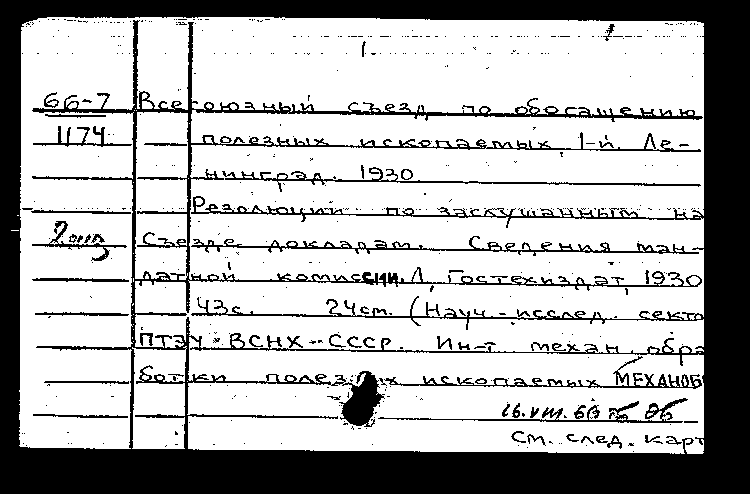 1.
66-7 Всесоюзный съезд по обогащению
1174 полезных ископаемых, 1-й. Ле-
нинград. 1930
Резолюции по заслушанным на
2 экз Съезде докладам. Сведения ман-
датной комиссии. Л, Гостехиздат, 1930
43с. 24см. (Науч.-исслед. секто
ПТЭУ-ВСНХ-СССР. Ин-т механ. обра
ботки полезных ископаемых МЕХАНОБ
16.VIII.66
См. след. карт